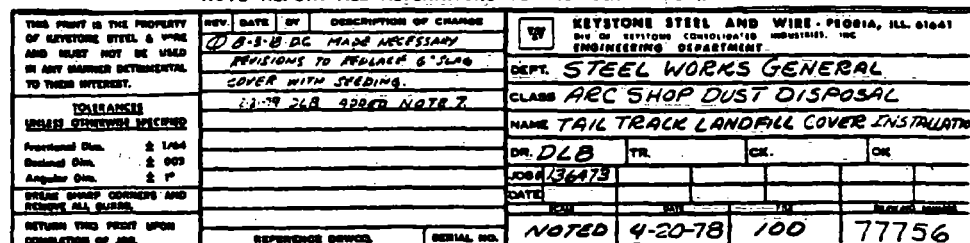 THIS PRINT IS THE PROPERTY
OF KEYSTONE STEEL & WIRE
AND MUST NOT BE USED
IN ANY MANNER DETRIMENTAL
TO THEIR INTEREST.
TOLERANCES
UNLESS OTHERWISE SPECIFIED
Fractional Dim. ± 1/64
Decimal Dim. ± 003
Angular Dim. ± 1°
BREAK SHARP CORNERS AND
REMOVE ALL BURRS.
RETURN THIS PRINT UPON
COMPLETION OF JOB.
REV. DATE BY DESCRIPTION OF CHANGE
MADE NECESSARY
REVISIONS TO REPLACE 6" SLAG
COVER WITH SEEDING.
ADDED NOTE 7.
REFERENCE DRWGS. SERIAL NO.
KEYSTONE STEEL AND WIRE - PEORIA, ILL. 61641
DIV OF KEYSTONE CONSOLIDATED INDUSTRIES, INC
ENGINEERING DEPARTMENT
DEPT. STEEL WORKS GENERAL
CLASS ARC SHOP DUST DISPOSAL
NAME TAIL TRACK LANDFILL COVER INSTALLATIO
DR. DLB TR. CK. OK
JOB# 136473
DATE
SCALE DATE
NOTED 4-20-78 100 77756